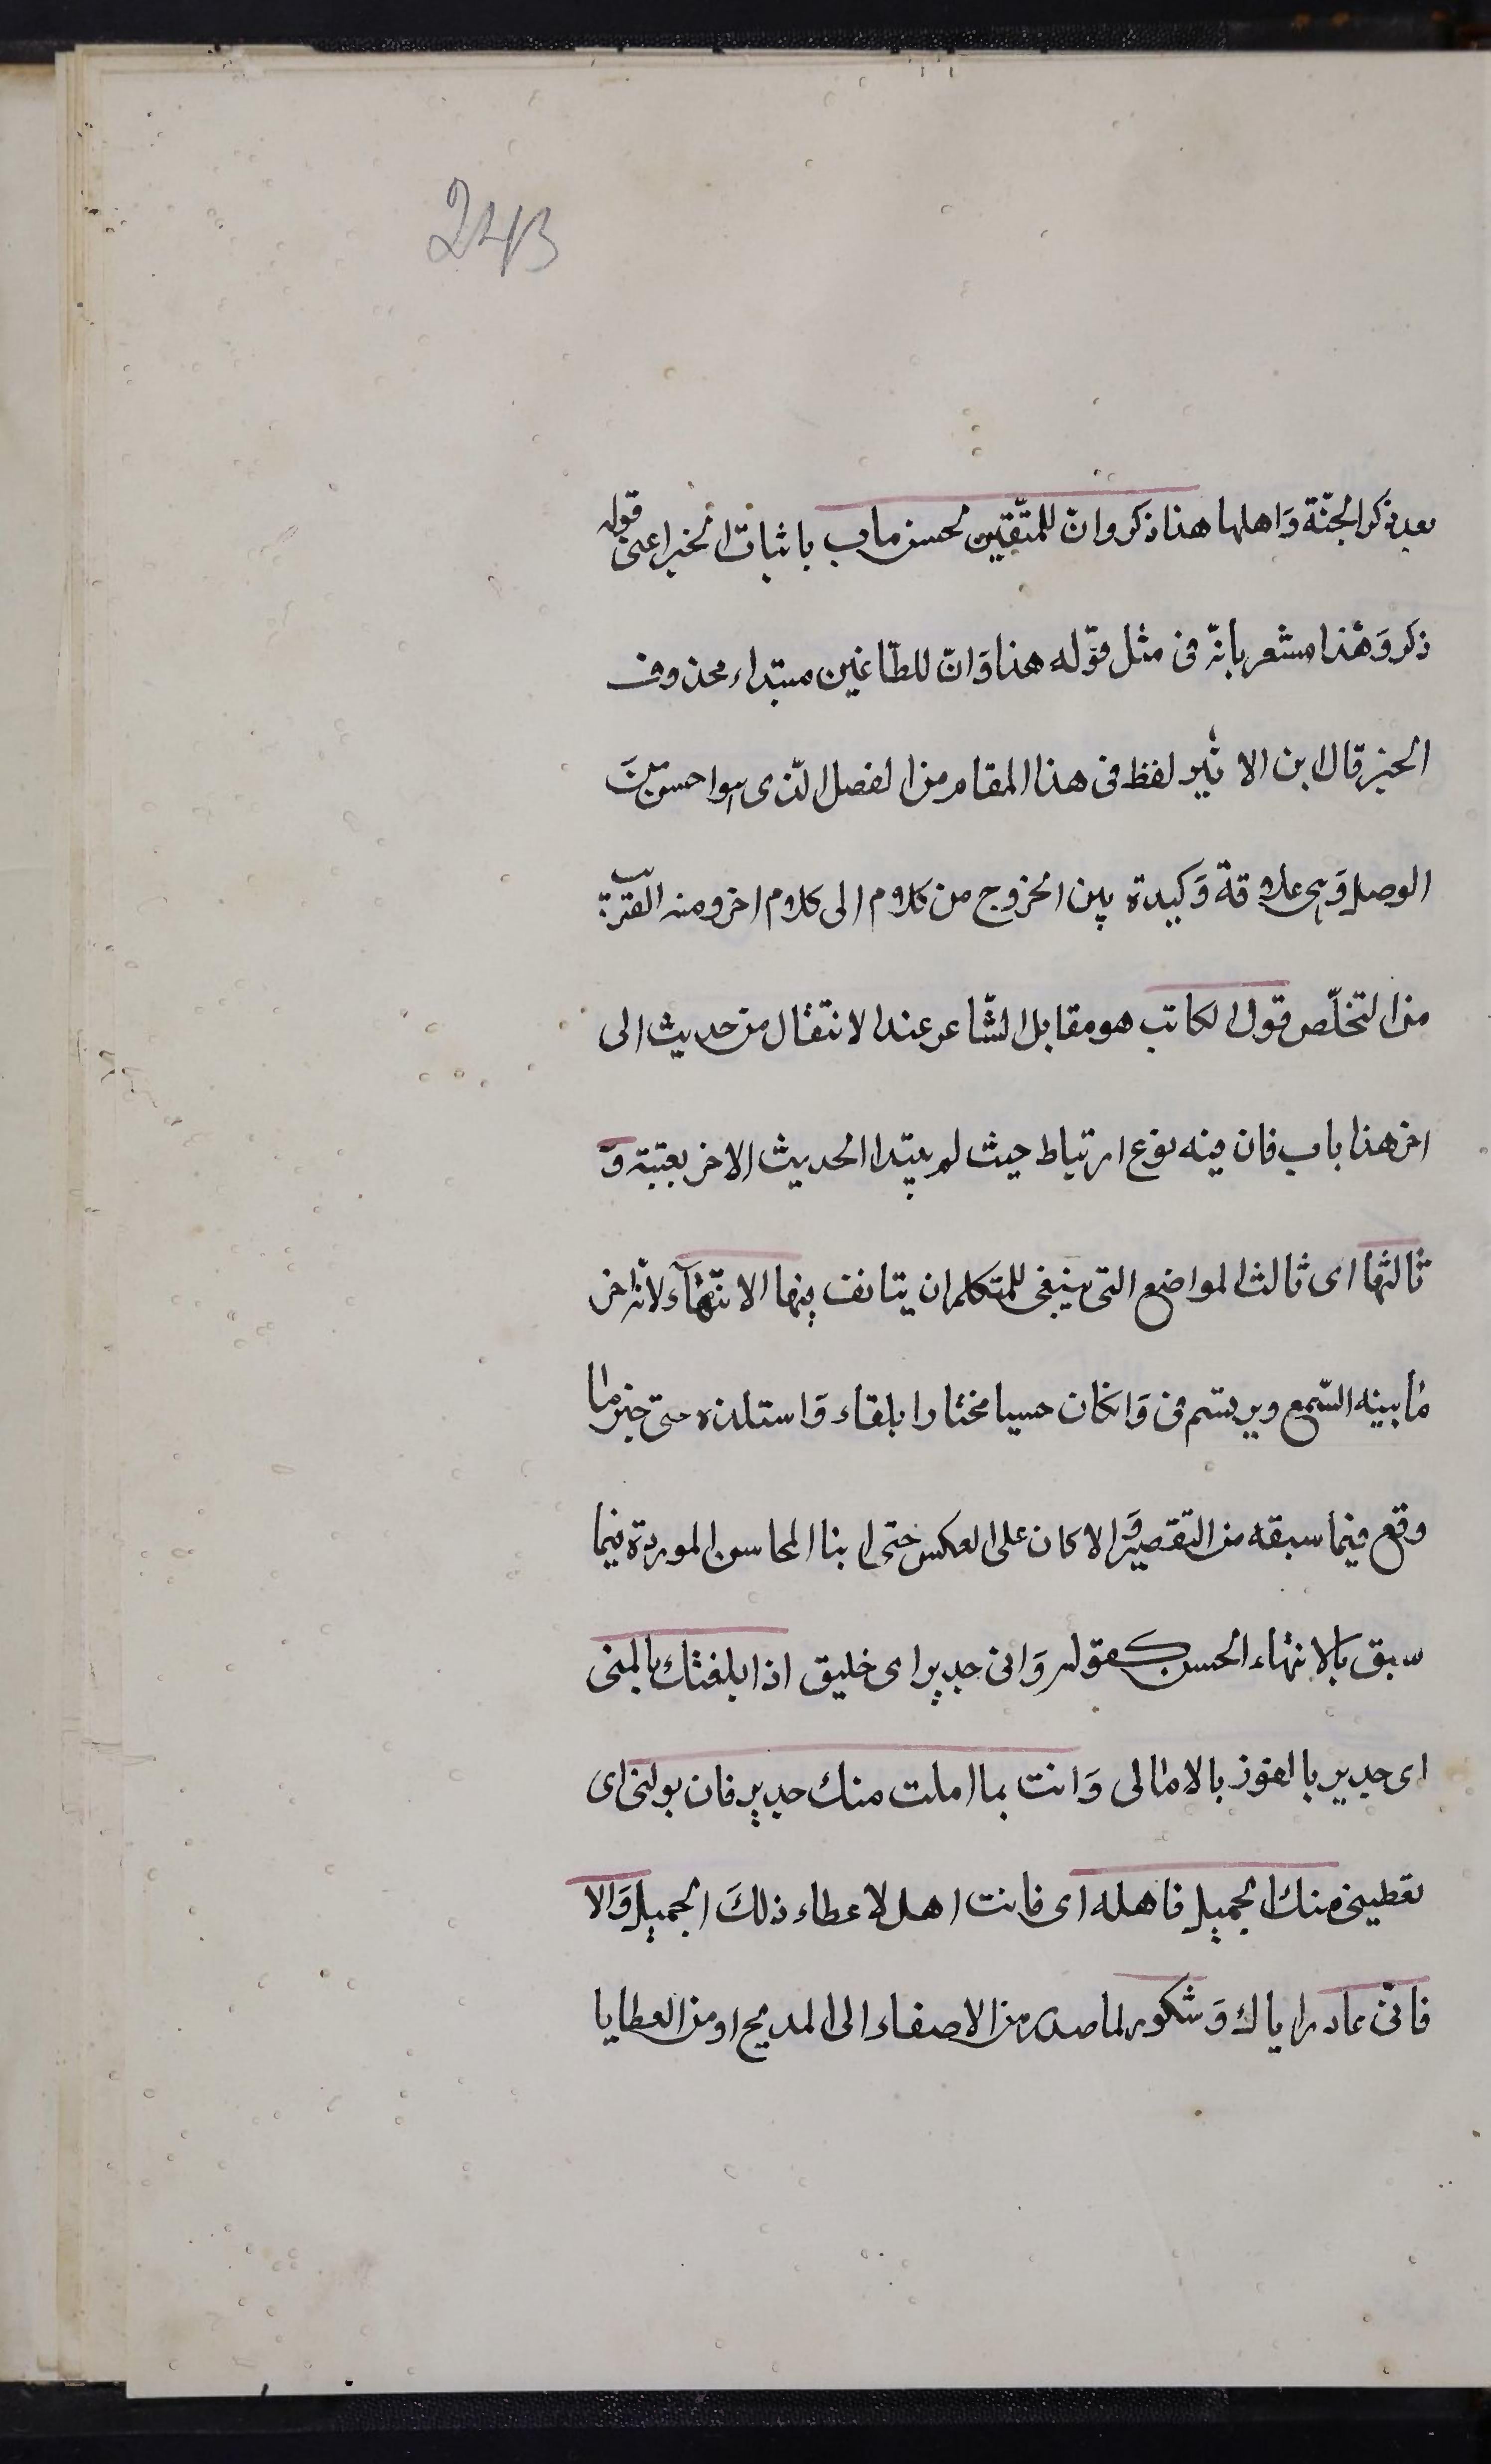 243
بعد ذكر الجنّة وَاهلها هذا ذكر وانّ للمتّقين لحسن ماب باثبات الخبر اعنى قوله
ذكر وَهٰذا مشعر بانّه فى مثل قوّله هذا وَانّ للطّاغين مبتداء محذوف
الخبر قال ابن الاثير لفظ فى هذا المقام من الفصل الّذى هوا حسن مِنَ
الوصل وَهى علاقة وَكيدة بين الخروج من كلام الى كلام اخر ومنه القريب
من التخلّص قول الكاتب هو مقابل الشّاعر عند الانتقال من حديث الى
اخر هذا باب فان فيه نوع ارتباط حيث لم يبتدا الحديث الاخر بغتبة وَ
ثالثها اى ثالث المواضع التى ينبغى للمتكلم ان يتانف فيها الانتهٰآء لانّه اخر
مٰا بينه السّمع ويرتسم فى وَانكان حسيا مختارا بلقاء وَاستلذه حتى جبر مٰا
وقع فيما سبقه من التقصير وَالا كان على العكس حتى ابنا المحاسن الموردة فيما
سبق بالانتهاء الحسن كقوله وَانى جدير اى خليق اذا بلغتك بالمنى
اى جدير بالفوز بالامٰالى وَانت بما املت منك جدير فان بولنى اى
تعطينى منك الجميل فاهله اى فانت اهل لاعطاء ذلكَ الجميل وَالا
فانّى عادر اياك وَشكور لما صدر من الاصفاء الى المديح او من العطايا